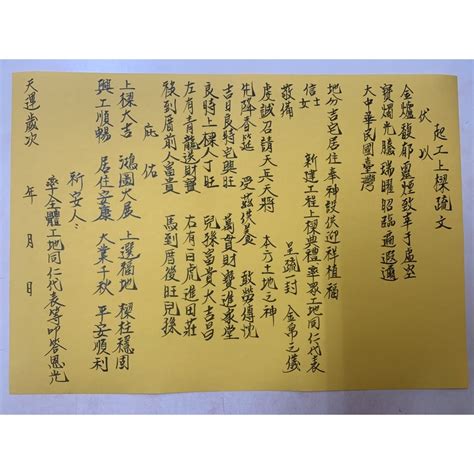 起工上樑疏文
伏以
金爐馥郁 靈煙致奉于虛空
寶燭光騰 瑞曜昭臨而遐邇
大中華民國臺灣
地分吉宅居住奉神設供迎祥植福
信士女 新建工程上樑典禮率眾工地同仁代表
敬備 呈疏一封 金帛之儀
虔誠召請天兵天將 本方土地之神
先降香筵 受茲供養 敢勞傳沈
吉日良時宅興旺 萬貫財寶進家堂
良時上樑人丁旺 兒孫富貴大吉昌
左有青龍送財寶 右有白虎進田莊
移到厝前人富貴 馬到厝後旺兒孫
庇佑
上樑大吉 鴻圖大展 上選福地 樑柱穩固
興工順暢 居住安康 大業千秋 平安順利
新安人：
率全體工地同仁代表等叩答恩光
天運歲次 年 月 日